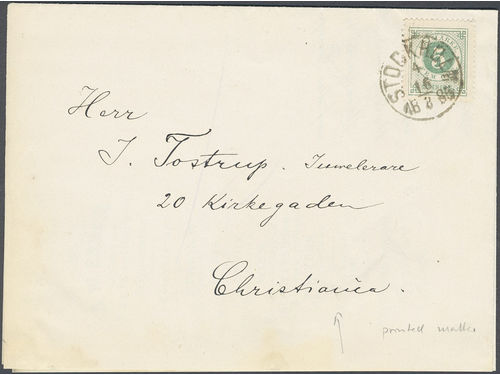 STOCKHOLM
Herr
J. Tostrup. Juwelerare
20 Kirkegaden
Christiania.
printed matter